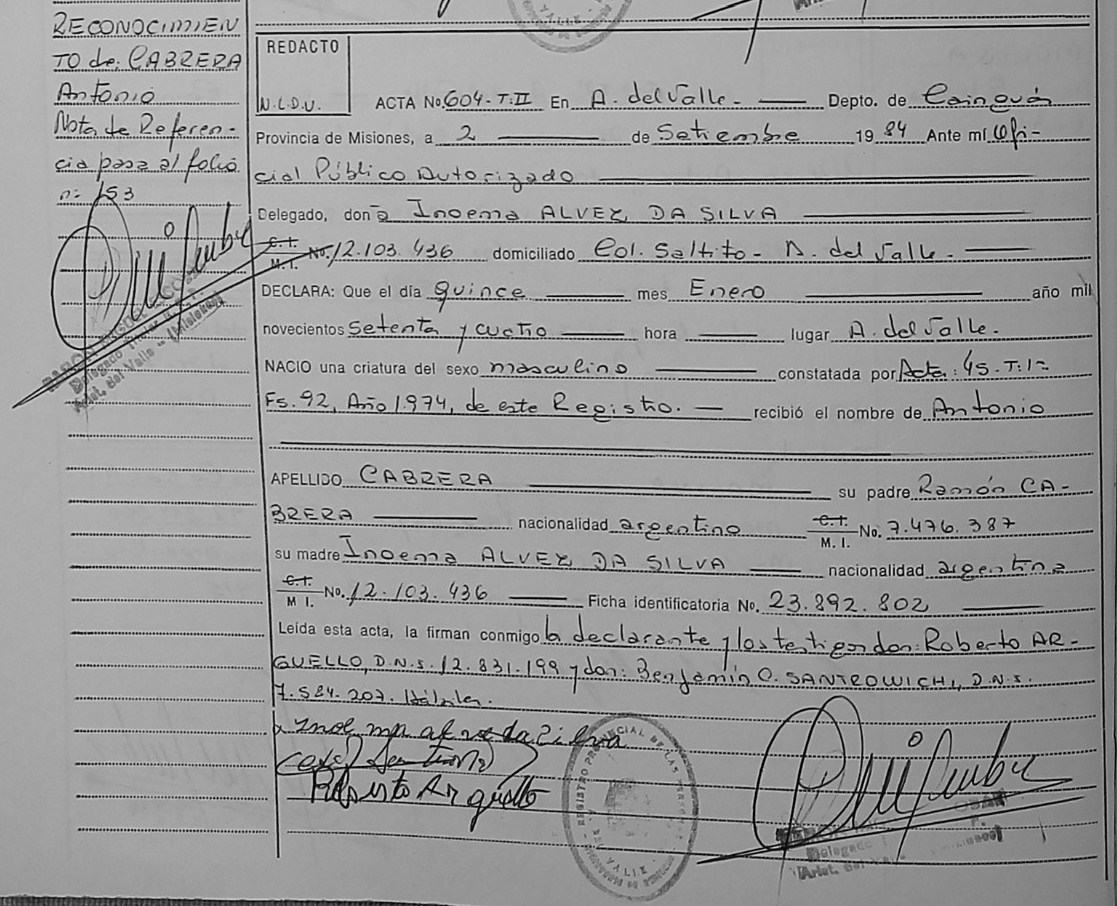 RECONOCIMIEN
TO de: CABRERA
Antonio
Nota de Referen-
cia para al folio
n: 153
REDACTO
N.L.D.V.
ACTA No. 604-T.II En A. del Valle.- Depto. de Cainguás
Provincia de Misiones, a 2 de Setiembre 19 84 Ante mí Ofi-
cial Público Autorizado
Delegado, don a Inoema ALVEZ DA SILVA
C.I. M.I. No. 12.103.436 domiciliado Col. Saltito - A. del Valle.
DECLARA: Que el día quince mes Enero año mil
novecientos setenta y cuatro hora lugar A. del Valle.
NACIO una criatura del sexo masculino constatada por Acta: 45.T:1-
Fs. 92, Año 1.974, de este Registro. recibió el nombre de Antonio
APELLIDO CABRERA su padre Ramón CA-
BRERA nacionalidad argentino C.I. M.I. No. 7.476.387
su madre Inoema ALVEZ DA SILVA nacionalidad argentina
C.I. M I. No. 12.103.436 Ficha identificatoria No. 23.892.802
Leída esta acta, la firman conmigo la declarante y los testigos don: Roberto AR-
GUELLO, D.N.I. 12.831.199 y don: Benjamín O. SANTROWICH, D.N.I.
7.584.207. Hábiles.
Roberto Arguello
REGISTRO PROVINCIAL DE LAS
Delegado
Arist. del Valle - (Misiones)
Delegado
Arist. del Valle